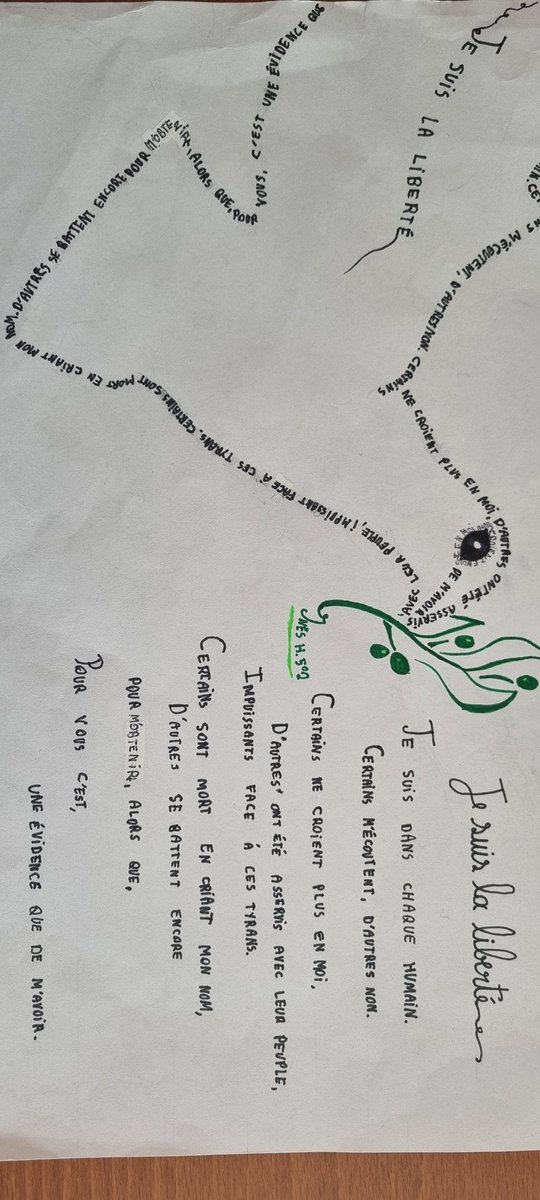 JE SUIS LA LIBERTÉ
NS M'ÉCOUTENT, D'AUTRES NON. CERTAINS
NE CROIENT PLUS EN MOI, D'AUTRES ONT ÉTÉ ASSERVIS
AVEC LEUR PEUPLE, IMPUISSANT FACE À CES TYRANS. CERTAINS SONT
MORT EN CRIANT MON NOM. D'AUTRES SE BATTENT ENCORE POUR M'OBTENIR, ALORS QUE, POUR
VOUS, C'EST UNE ÉVIDENCE QUE
DE M'AVOIR
Je suis la liberté
JE SUIS DANS CHAQUE HUMAIN.
CERTAINS M'ÉCOUTENT, D'AUTRES NON.
CERTAINS NE CROIENT PLUS EN MOI,
D'AUTRES ONT ÉTÉ ASSERVIS AVEC LEUR PEUPLE,
IMPUISSANTS FACE À CES TYRANS.
CERTAINS SONT MORT EN CRIANT MON NOM,
D'AUTRES SE BATTENT ENCORE
POUR M'OBTENIR, ALORS QUE,
POUR VOUS C'EST,
UNE ÉVIDENCE QUE DE M'AVOIR.
H. 502